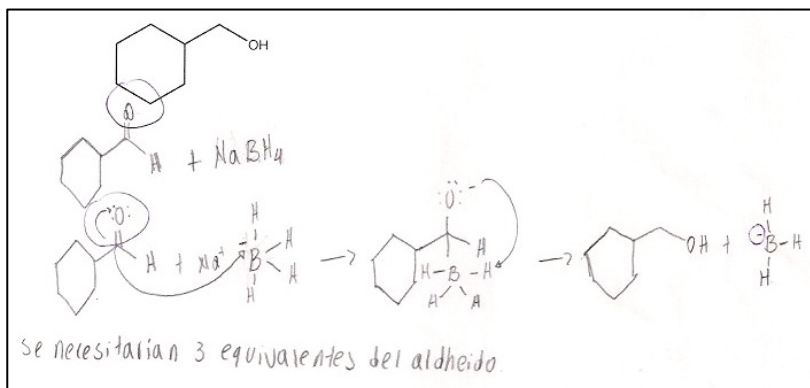 OH
O
H + NaBH4
:O: H :O: -
H + Na+ H B H H H → H H - B - H H H → OH + - H B - H H
se necesitarian 3 equivalentes del aldheido.